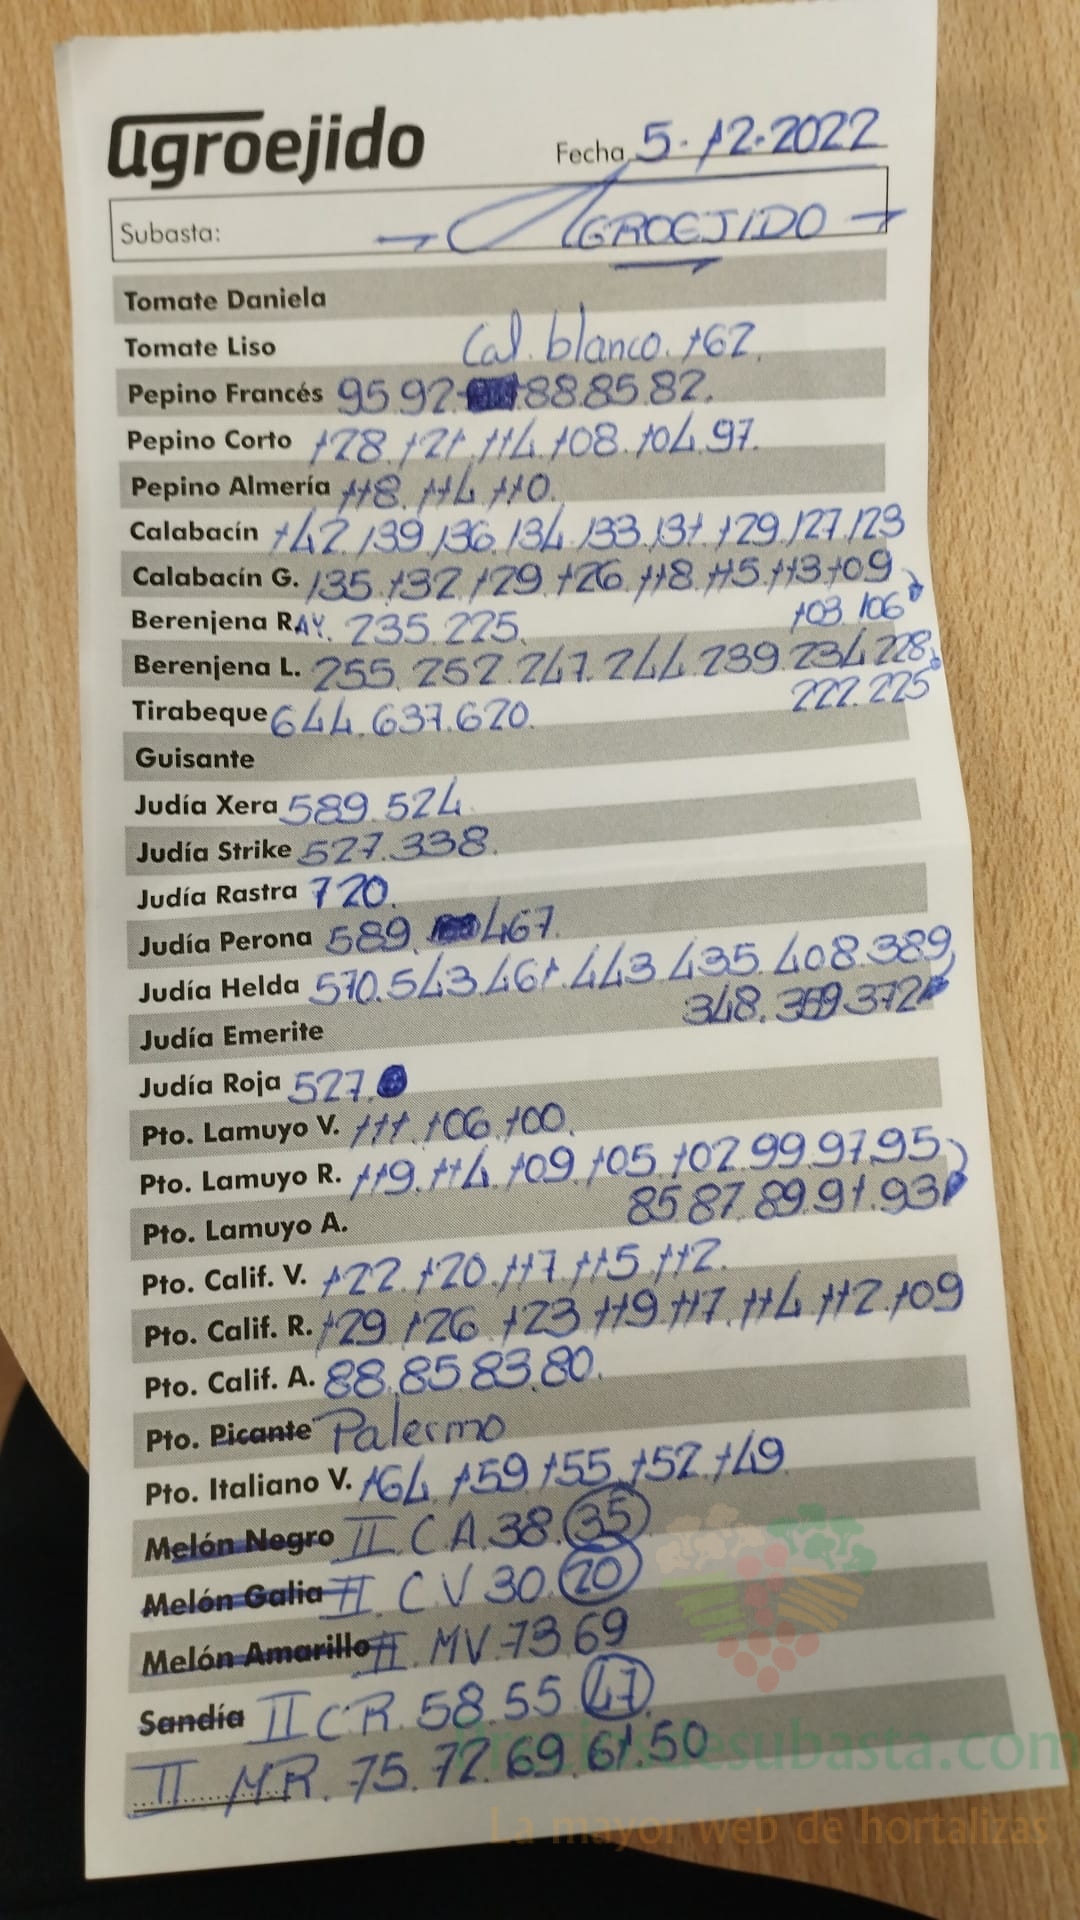 agroejido
Fecha 5-12-2022
Subasta: AGROEJIDO
Tomate Daniela
Tomate Liso Cal. blanco. 162.
Pepino Francés 95.92. 88.85.82.
Pepino Corto 128.121.114.108.104.97.
Pepino Almería 118.114.110.
Calabacín 142.139.136.134.133.131.129.127.123
Calabacín G. 135.132.129.126.118.115.113.109
103.106
Berenjena RAY. 235.225.
Berenjena L. 255.252.247.244.239.234.228
222.225
Tirabeque 644.637.620.
Guisante
Judía Xera 589.524
Judía Strike 527.338.
Judía Rastra 720.
Judía Perona 589. 467.
Judía Helda 570.543.461.443.435.408.389
348.359.372
Judía Emerite
Judía Roja 527.
Pto. Lamuyo V. 111.106.100.
Pto. Lamuyo R. 119.114.109.105.102.99.97.95
85.87.89.91.93
Pto. Lamuyo A.
Pto. Calif. V. 122.120.117.115.112.
Pto. Calif. R. 129.126.123.119.117.114.112.109
Pto. Calif. A. 88.85.83.80.
Pto. Picante Palermo
Pto. Italiano V. 164.159.155.152.149
Melón Negro II C.A.38.35
Melón Galia II. C.V 30.20
Melón Amarillo II. MV.73.69
Sandía II C.R. 58.55.47
II MR. 75.72.69.61.50
Preciosdesubasta.com
La mayor web de hortalizas